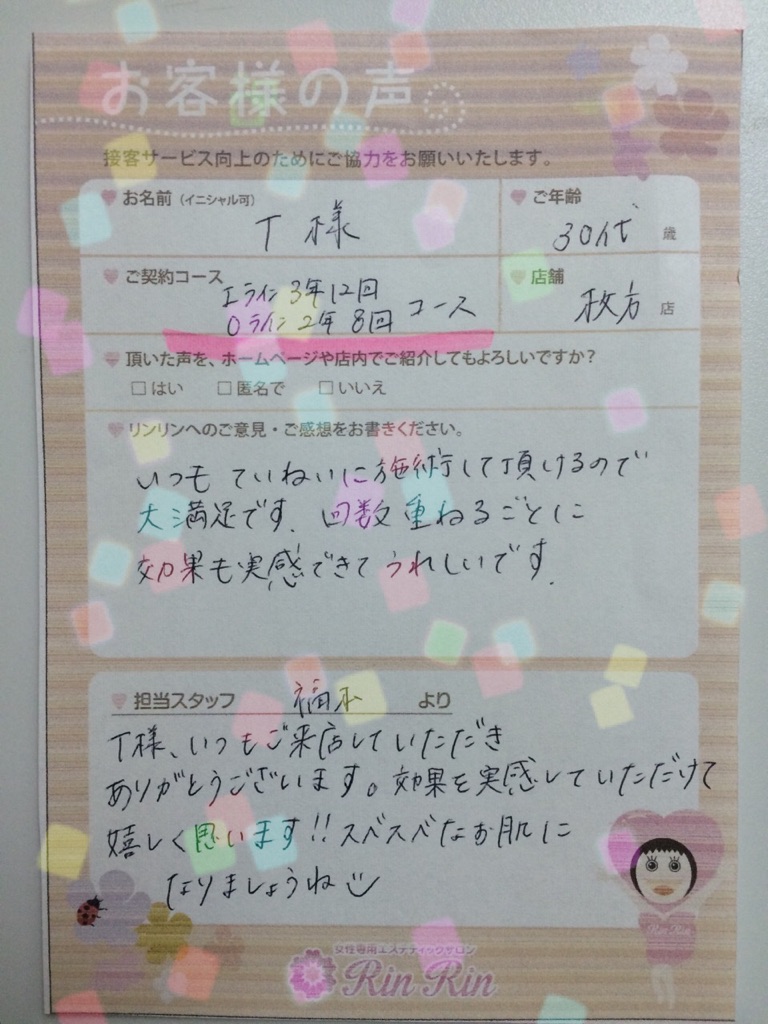 お客様の声
接客サービス向上のためにご協力をお願いいたします。
お名前（イニシャル可）
T様
ご年齢
30代 歳
ご契約コース
Iライン3年12回
Oライン2年8回 コース
店舗
枚方 店
頂いた声を、ホームページや店内でご紹介してもよろしいですか？
□はい □匿名で □いいえ
リンリンへのご意見・ご感想をお書きください。
いつもていねいに施術して頂けるので
大満足です。回数重ねるごとに
効果も実感できてうれしいです。
担当スタッフ 福本 より
T様、いつもご来店していただき
ありがとうございます。効果を実感していただけて
嬉しく思います!!スベスベなお肌に
なりましょうね
Rin Rin
女性専用エステティックサロン
Rin Rin